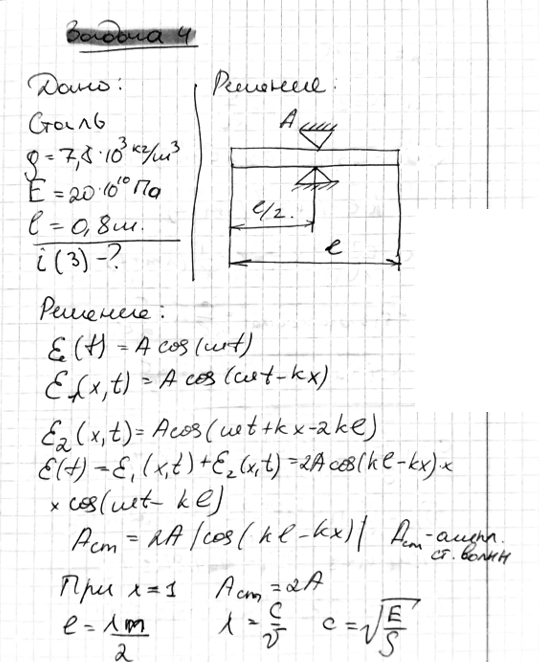 Задача 4
Дано:
Сталь
ρ = 7,8·10³ кг/м³
E = 20·10¹⁰ Па
l = 0,8 м.
i(3) - ?
Решение:
A
l/2.
l
Решение:
ξ(t) = A cos(ωt)
ξ₁(x,t) = A cos(ωt - kx)
ξ₂(x,t) = A cos(ωt + kx - 2kl)
ξ(t) = ξ₁(x,t) + ξ₂(x,t) = 2A cos(kl - kx) ×
× cos(ωt - kl)
Aст = 2A |cos(kl - kx)| Aст - ампл. ст. волны
При x = 1 Aст = 2A
l = λm/2 λ = c/ν c = √(E/ρ)